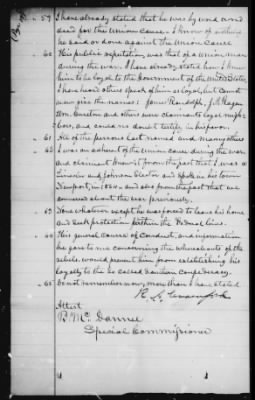 57 I have already stated that he was by word and
deed for the Union cause. I know of nothing
he said or done against the Union cause
60 His public reputation, was that of a Union man
during the war. I have already stated how I knew
him to be loyal to the Government of the United States,
I have heard others speak of him as loyal, but cannot
now give the names: James Randolph, J. A.
and others were claimants loyal neigh-
bors, and could now testify in his favor.
61 He of the persons last named and many others
62 I was an adherent of the Union cause during the war,
and claimant knew it from the fact that I was a
Lincoln and Johnson Elector and spoke in his town
Newport, in 1864 - and also from the fact that we
conversed about the war previously.
63 None whatever except he was forced to leave his home
and seek protection within the Federal lines.
64 His general course of conduct, and information
he gave to me concerning the whereabouts of the
rebels would prevent him from establishing his
loyalty to the so called Southern Confederacy.
65 Do not remember now, more than I have stated
Attest
Special Commissioner